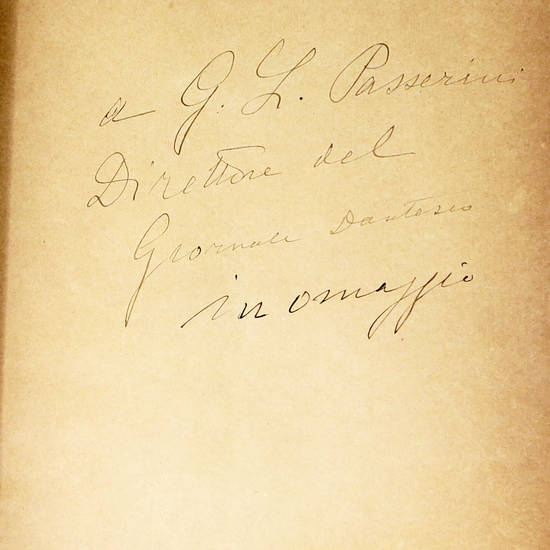 a G. L. Passerini
Direttore del
Giornale Dantesco
in omaggio